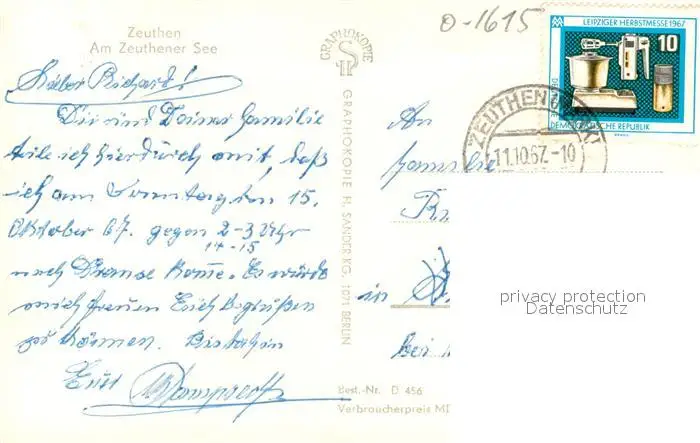 Zeuthen
Am Zeuthener See
Lieber Richard!
Dir und Deiner Familie
teile ich hierdurch mit, daß
ich am Sonntag den 15.
Oktober 67. gegen 2-3 Uhr
14-15
nach Premse komme. Es würde
mich freuen Euch begrüßen
zu können. Bis dahin
Euer
GRAPHOKOPIE
GRAPHOKOPIE H. SANDER KG. 1071 BERLIN
Best.-Nr. D 456
Verbraucherpreis M
0-1615
LEIPZIGER HERBSTMESSE 1967
10
DEMOKRATISCHE REPUBLIK
ZEUTHEN
11.10.67.-10
An
Familie
in
bei
privacy protection
Datenschutz